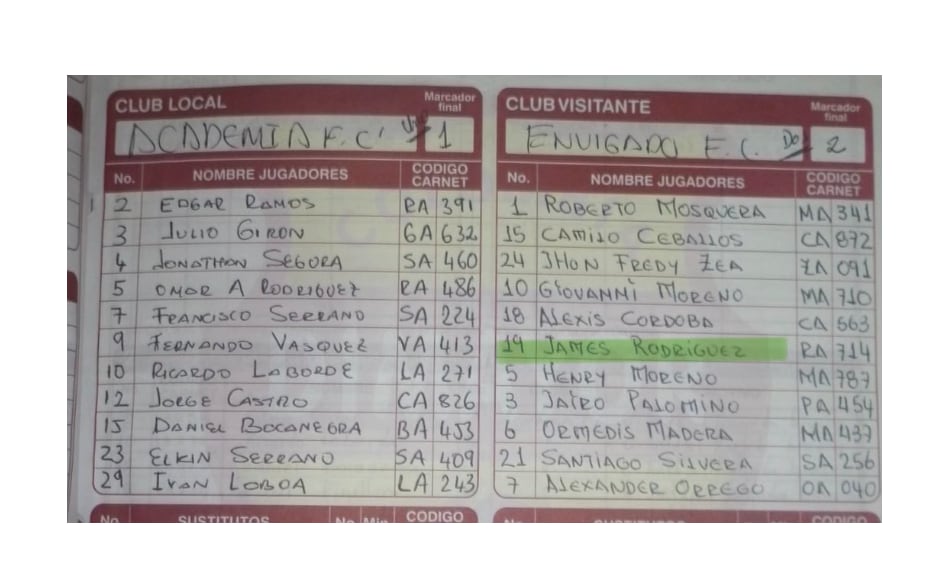 CLUB LOCAL Marcador final
ACADEMIA F.C. 1
No. NOMBRE JUGADORES CODIGO CARNET
2 EDGAR RAMOS RA 391
3 JULIO GIRON GA 632
4 JONATHAN SEGORA SA 460
5 OMAR A RODRIGUEZ RA 486
7 FRANCISCO SERRANO SA 224
9 FERNANDO VASQUEZ VA 413
10 RICARDO LABORDE LA 271
12 JORGE CASTRO CA 826
15 DANIEL BOCANEGRA BA 453
23 ELKIN SERRANO SA 409
29 IVAN LOBOA LA 243
No. SUSTITUTOS No. Min. CODIGO
CLUB VISITANTE Marcador final
ENVIGADO F.C. 2
No. NOMBRE JUGADORES CODIGO CARNET
1 ROBERTO MOSQUERA MA 341
15 CAMILO CEBALLOS CA 872
24 JHON FREDY ZEA ZA 091
10 GIOVANNI MORENO MA 710
18 ALEXIS CORDOBA CA 563
19 JAMES RODRIGUEZ RA 714
5 HENRY MORENO MA 787
3 JAIRO PALOMINO PA 454
6 ORMEDIS MADERA MA 437
21 SANTIAGO SILVERA SA 256
7 ALEXANDER ORREGO OA 040
No. SUSTITUTOS CODIGO